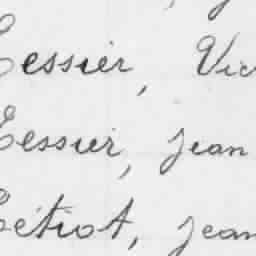 Tessier, Vic
Tessier, Jean
Tétiot, Jean